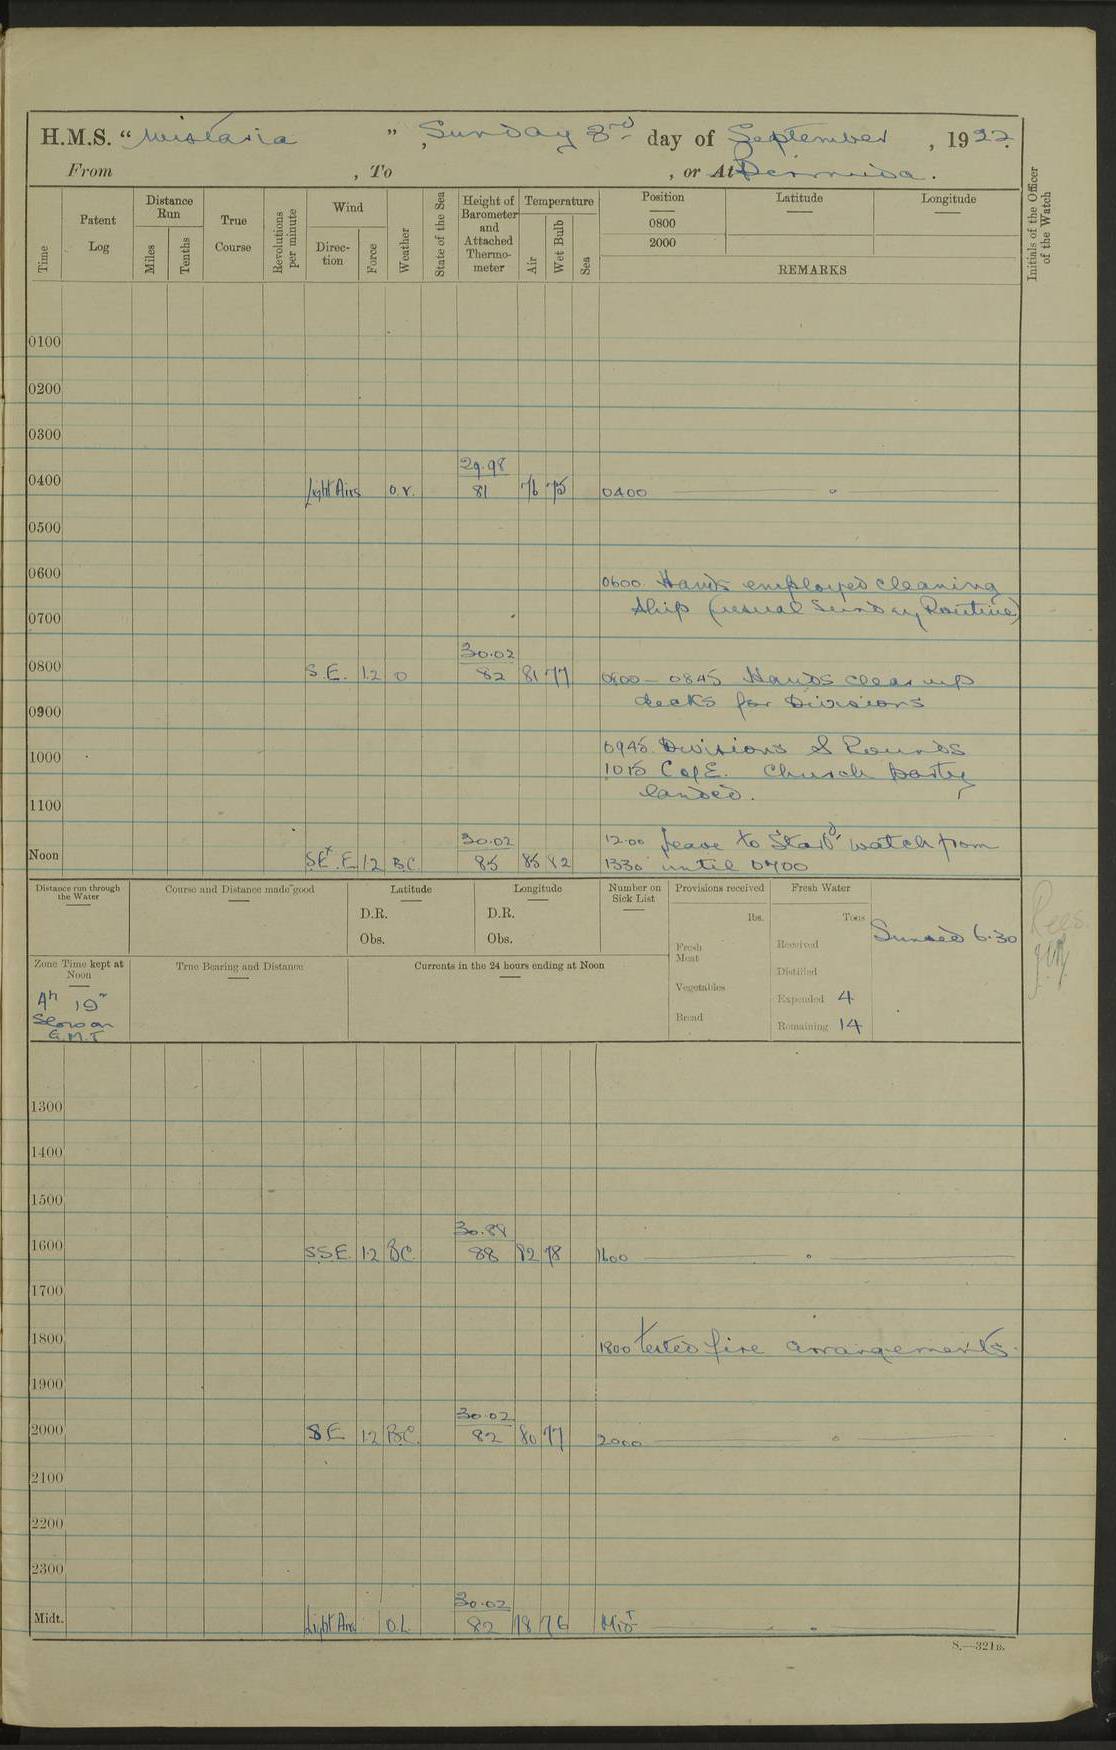 H.M.S. “ Wistaria ” , Sunday 3rd day of September , 1922.
From , To , or At Bermuda.
Time
Patent Log
Distance Run
Miles
Tenths
True Course
Revolutions per minute
Wind
Direc- tion
Force
Weather
State of the Sea
Height of Barometer and Attached Thermo- meter
Temperature
Air
Wet Bulb
Sea
Position
0800
2000
Latitude
Longitude
REMARKS
Initials of the Officer of the Watch
0100
0200
0300
29.98
0400 Light Airs O.R. 81 76 75 0400
0500
0600 0600 Hands employed cleaning
Ship (usual Sunday Routine)
0700
30.02
0800 S.E. 1.2 O 82 81 77 0800 – 0845 Hands clear up
decks for Divisions
0900
0945 Divisions & Rounds
1000 1015 C of E. Church party
landed.
1100
30.02 12.00 leave to Starbd watch from
Noon SE x E 1 2 B.C 85 85 82 1330 until 0700
Distance run through the Water
Course and Distance made good
Latitude
D.R.
Obs.
Longitude
D.R.
Obs.
Number on Sick List
Provisions received
lbs.
Fresh Meat
Vegetables
Bread
Fresh Water
Tons
Received
Distilled
Expended 4
Remaining 14
Sunset 6.30
Rees.
Zone Time kept at Noon
4h 19m
Slow on
G.M.T
True Bearing and Distance
Currents in the 24 hours ending at Noon
1300
1400
1500
30.88
1600 SSE 1.2 BC. 88 82 78 1600
1700
1800 1800 tested fire arrangements.
1900
30.02
2000 SE 1.2 BC. 82 80 77 2000
2100
2200
2300
30.02
Midt. Light Airs O.L. 82 78 76 Midt
S.—321B.